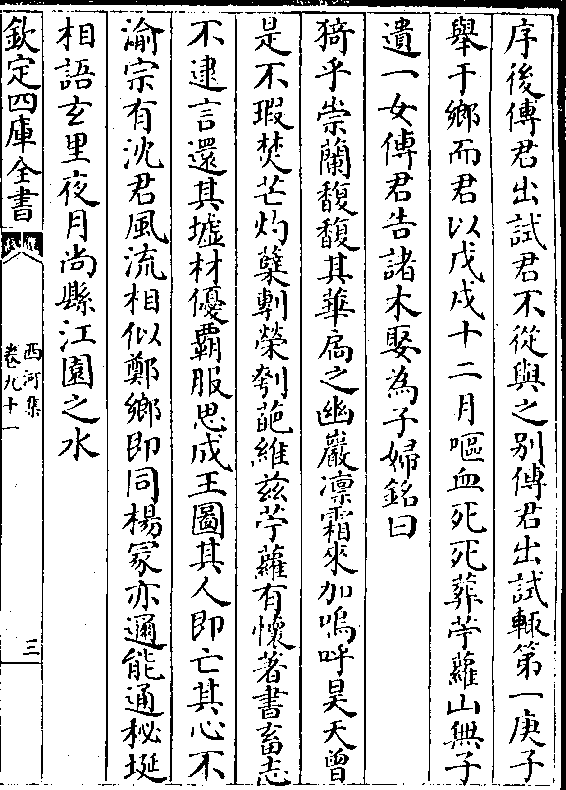 序後傅君出試君不從與之别傅君出試輒第一庚子
舉于鄉而君以戊戌十二月嘔血死死葬苧蘿山無子
遺一女傅君告諸木娶為子婦銘曰
猗乎崇蘭馥馥其華扃之幽巖凛霜來加嗚呼昊天曾
是不瑕焚芒灼蘖剸榮刳葩維兹苧蘿有懷著書畜志
不逮言還其墟材優覇服思成王圖其人即亡其心不
渝宗有沈君風流相似鄭鄉即同楊冡亦邇能通秘埏
相語玄里夜月尚縣江園之水
欽定四庫全書
西河集
卷九十一
三